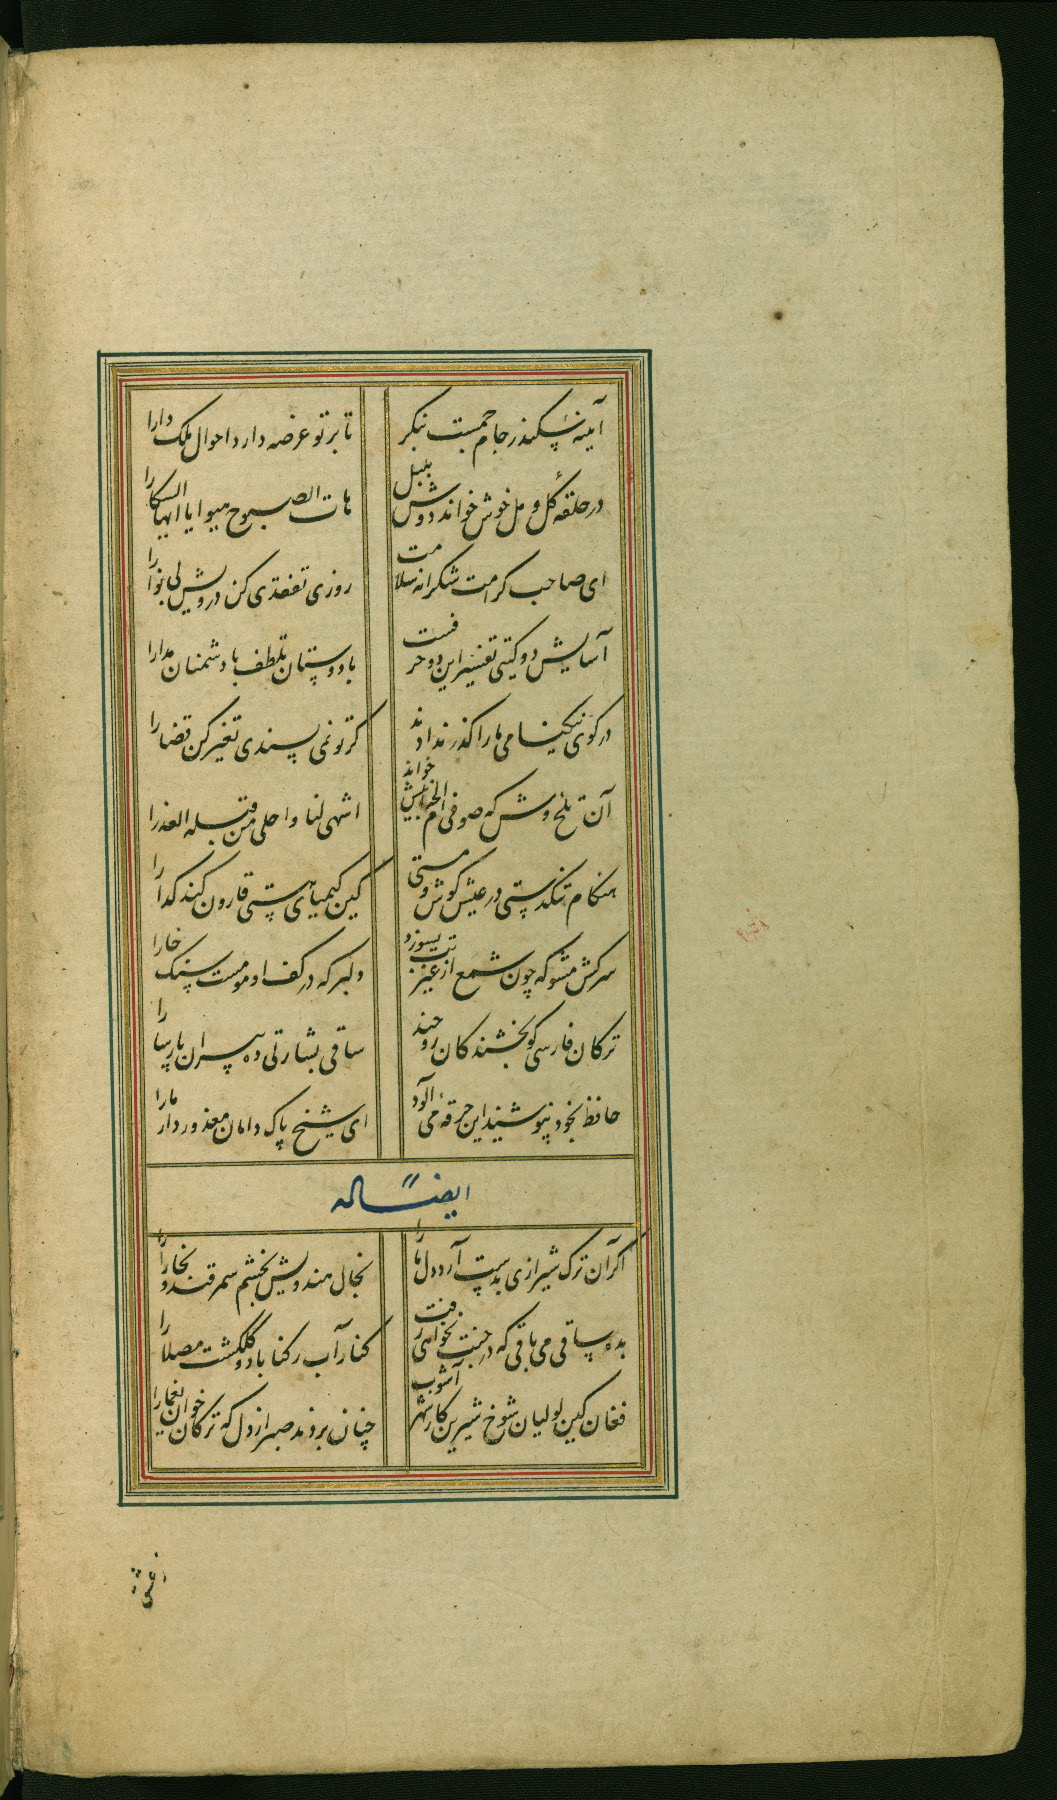 آینه سکندر جام جمست بنکر تا بر تو عرضه دارد احوال ملک دارا
در حلقهٔ کل و مل خوش خواند دوش بلبل هات الصبوح هیوا یا ایها السکارا
ای صاحب کرامت شکرانه سلامت روزی تفقدی کن درویش بی نوا را
آسایش دو کیتی تفسیر این دو حرفست با دوستان تلطف با دشمنان مدارا
در کوی نیکنامی ما را کذر ندادند کر تو نمی پسندی تغیر کن قضا را
آن تلخ وش که صوفی ام الخبایثش خواند اشهی لنا و احلی من قبله العذرا
هنکام تنکدستی در عیش کوش و مستی کین کیمیای هستی قارون کند کدا را
سرکش مشو که چون شمع از غیرتت بسوزد دلبر که در کف او مومست سنک خارا
ترکان فارسی کو بخشندکان روحند ساقی بشارتی ده پیران پارسا را
حافظ بخود نپوشید این خرقهٔ می آلود ای شیخ پاک دامان معذور دار ما را
ایضاً له
اکر آن ترک شیرازی بدست آرد دل ما را بخال هندویش بخشم سمرقند و بخارا را
بده ساقی می باقی که در جنت نخواهی یافت کنار آب رکناباد و کلکشت مصلا را
فغان کین لولیان شوخ شیرین کار شهر آشوب چنان بردند صبر از دل که ترکان خوان یغما را
ز عشق